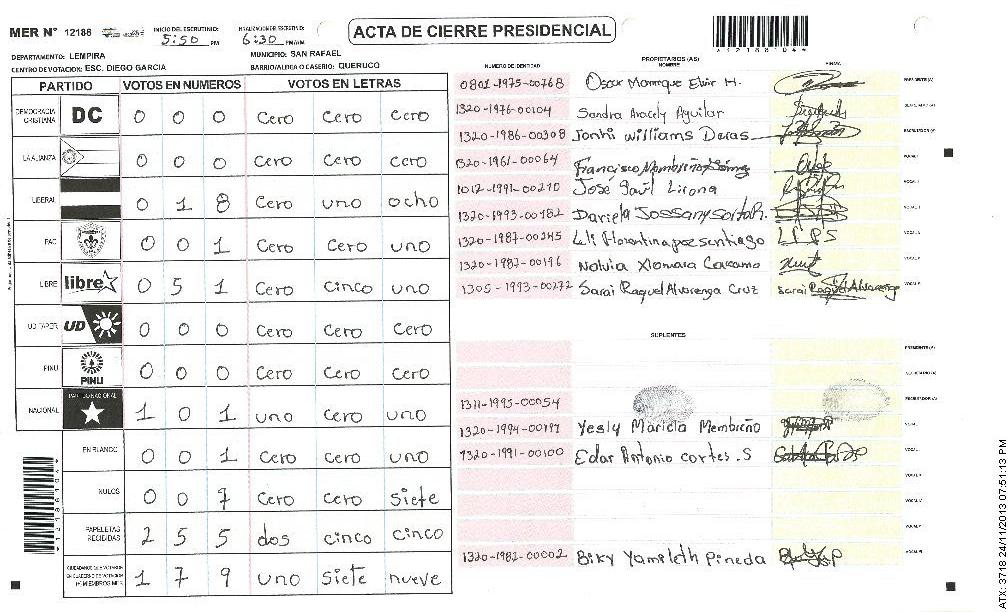 MER N° 12186 INICIO DEL ESCRUTINIO: 5:50 PM FINALIZACION DE ESCRUTINIO: 6:30 PM/AM ACTA DE CIERRE PRESIDENCIAL
DEPARTAMENTO: LEMPIRA MUNICIPIO: SAN RAFAEL
CENTRO DE VOTACION: ESC. DIEGO GARCIA BARRIO/ALDEA O CASERIO: QUERUCO
PARTIDO VOTOS EN NUMEROS VOTOS EN LETRAS
DEMOCRACIA CRISTIANA DC 0 0 0 Cero Cero Cero
LA ALIANZA 0 0 0 Cero Cero Cero
LIBERAL 0 1 8 Cero uno ocho
PAC 0 0 1 Cero Cero uno
LIBRE libre 0 5 1 Cero Cinco uno
UD FAPER UD 0 0 0 Cero Cero Cero
PINU PINU 0 0 0 Cero Cero Cero
NACIONAL PARTIDO NACIONAL 1 0 1 uno Cero uno
EN BLANCO 0 0 1 Cero Cero uno
NULOS 0 0 7 Cero Cero Siete
PAPELETAS RECIBIDAS 2 5 5 dos cinco cinco
1 7 9 uno siete nueve
NUMERO DE IDENTIDAD PROPIETARIOS (AS) FIRMA
0801-1975-00768 Oscar Manrique Elvir H. PRESIDENTE (A)
1320-1976-00104 Sandra Aracely Aguilar SECRETARIO (A)
1320-1986-00308 Jonhi Williams Deras ESCRUTADOR (A)
1320-1961-00064 Francisco Membreño Gómez VOCAL I
1012-1991-00210 Jose Saúl VOCAL II
1320-1993-00182 Dariela Jossany
1320-1987-00245 Florentina
1320-1987-00196 Xiomara
1305-1993-00272 Sarai Raquel Alvarenga Cruz Sarai Raquel Alvarenga
SUPLENTES
PRESIDENTE (A)
SECRETARIO (A)
1311-1995-00054 ESCRUTADOR (A)
1320-1994-00197 Yesly Maricla Membreño
1320-1991-00100 Edar Antonio Cortes .S
1320-1982-00002 Biky Yamileth Pineda
ATX: 3718 24/11/2013 07:51:13 PM